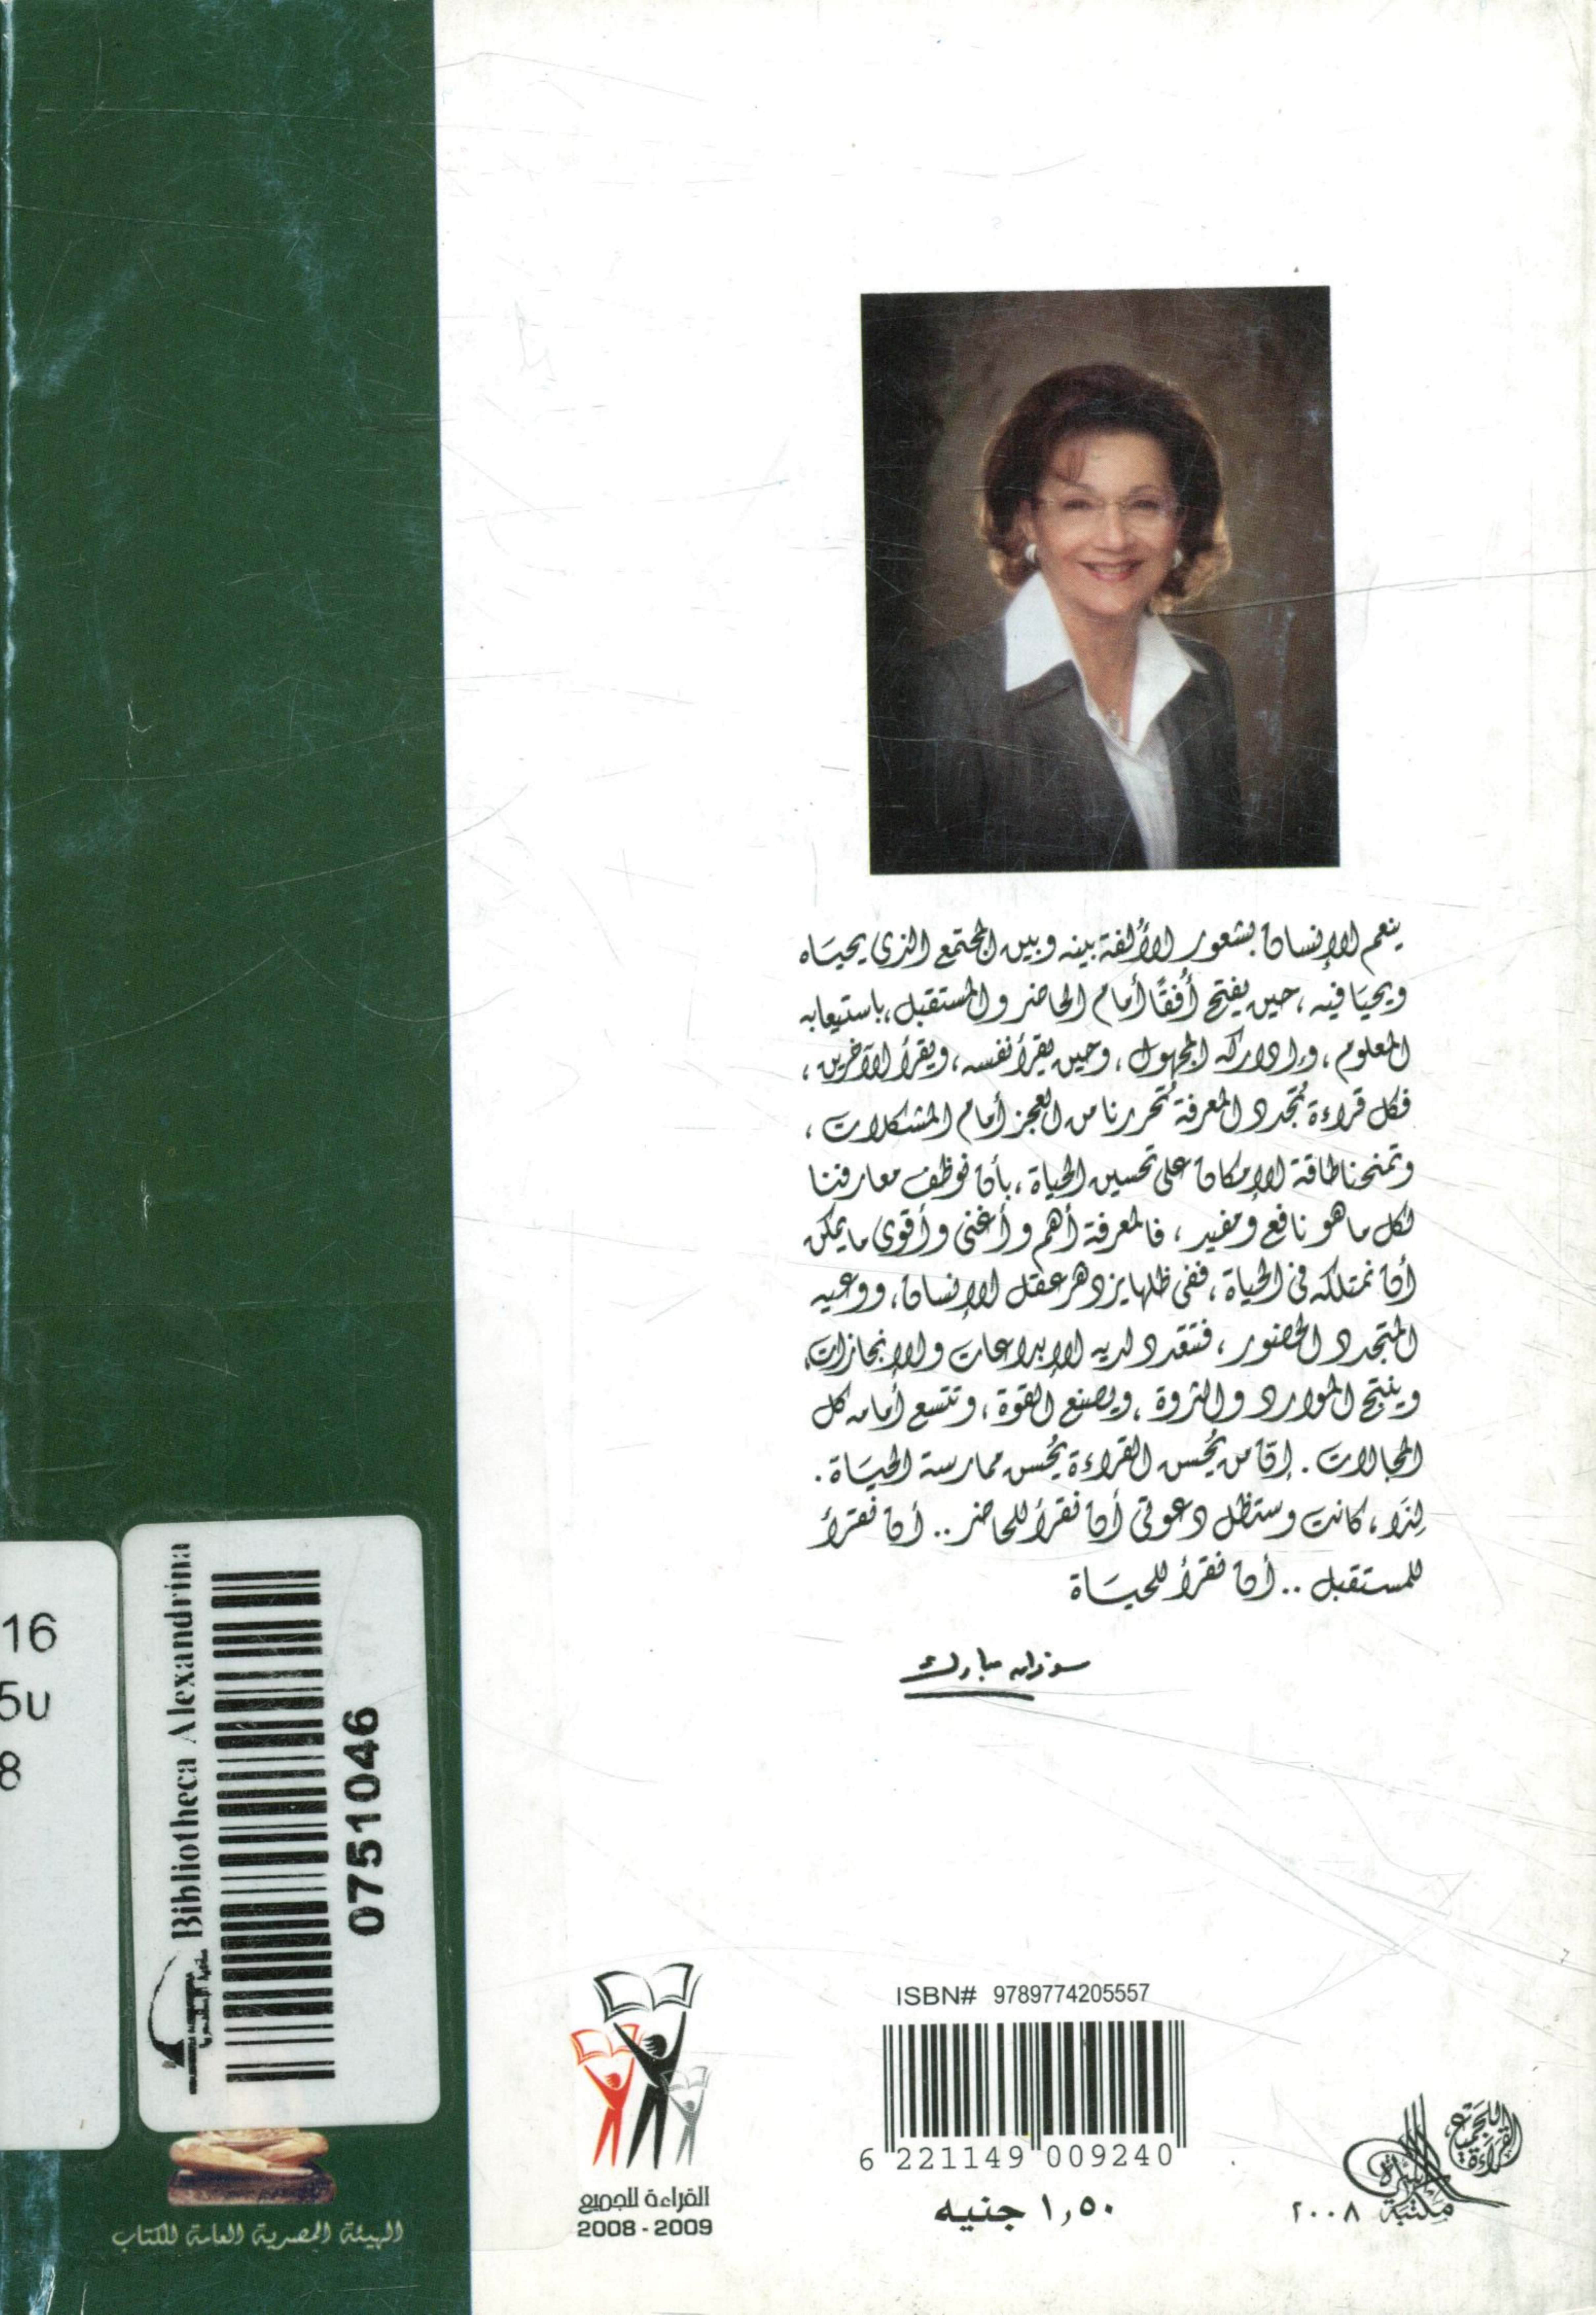 ينعم الإنسان بشعور الألفة بينه وبين المجتمع الذى يحياه
ويحيا فيه، حين يفتح أُفقًا أمام الحاضر والمستقبل، باستيعابه
المعلوم، وإدراكه المجهول، وحين يقرأ نفسه، ويقرأ الآخرين،
فكل قراءة تُجدد المعرفة تُحررنا من العجز أمام المشكلات،
وتمنحنا طاقة الإمكان على تحسين الحياة، بأن نوظف معارفنا
لكل ما هو نافع ومفيد، فالمعرفة أهم وأغنى وأقوى ما يمكن
أن نمتلكه فى الحياة، ففى ظلها يزدهر عقل الإنسان، ووعيه
المتجدد الحضور، فتتعدد لديه الإبداعات والإنجازات،
وينتج الموارد والثروة، ويصنع القوة، وتتسع أمامه كل
المجالات. إن من يُحسن القراءة يُحسن ممارسة الحياة.
لِذَا، كانت وستظل دعوتى أن نقرأ للحاضر.. أن نقرأ
للمستقبل.. أن نقرأ للحياة
سوزان مبارك
16
5u
8
Bibliotheca Alexandrina
مكتبة الإسكندرية
0751046
الهيئة المصرية العامة للكتاب
القراءة للجميع
2008 - 2009
ISBN# 9789774205557
6 221149 009240
١٫٥٠ جنيه
القراءة للجميع
مكتبة الأسرة
٢٠٠٨